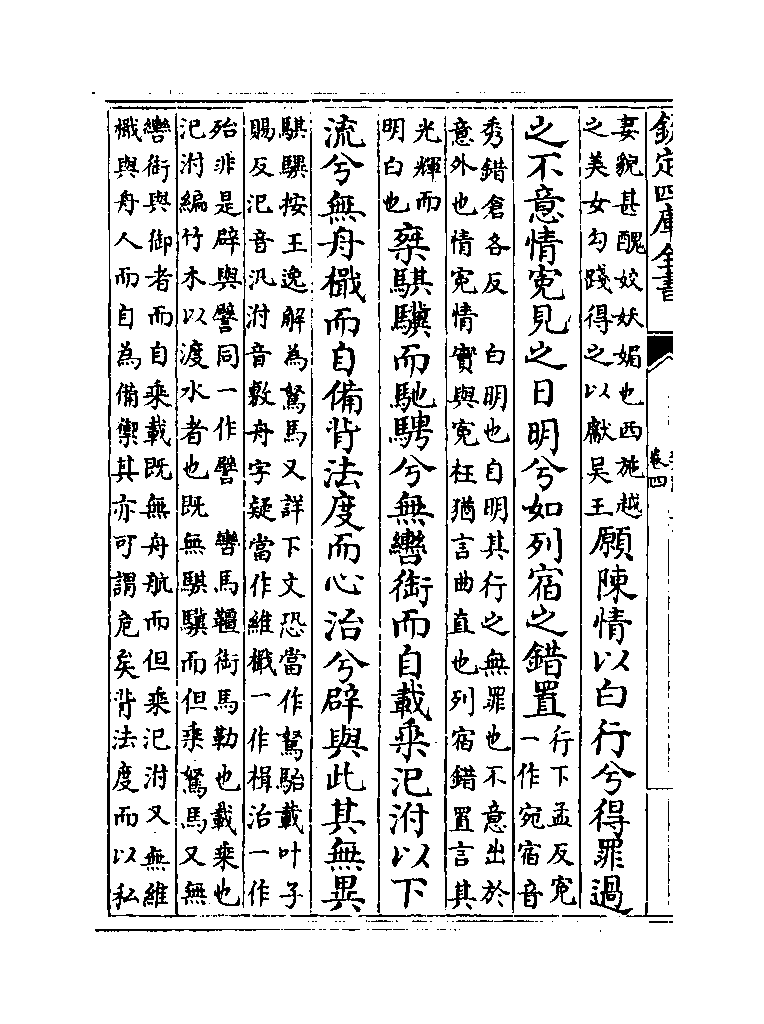 欽定四庫全書
卷四
妻貌甚醜姣妖媚也西施越
之美女勾踐得之以獻吳王
願陳情以白行兮得罪過
之不意情冤見之日明兮如列宿之錯置
行下孟反冤
一作宛宿音
秀錯倉各反　白明也自明其行之無罪也不意出於
意外也情冤情實與冤枉猶言曲直也列宿錯置言其
光輝而
明白也
椉騏驥而馳騁兮無轡銜而自載乘氾泭以下
流兮無舟檝而自備背法度而心治兮辟與此其無異
騏驥按王逸解為駑馬又詳下文恐當作駑駘載叶子
賜反氾音汎泭音敷舟字疑當作維檝一作楫治一作
殆非是辟與譬同一作譬　轡馬韁銜馬勒也載乘也
氾泭編竹木以渡水者也既無騏驥而但乘駑馬又無
轡銜與御者而自乘載既無舟航而但乘氾泭又無維
檝與舟人而自為備禦其亦可謂危矣背法度而以私